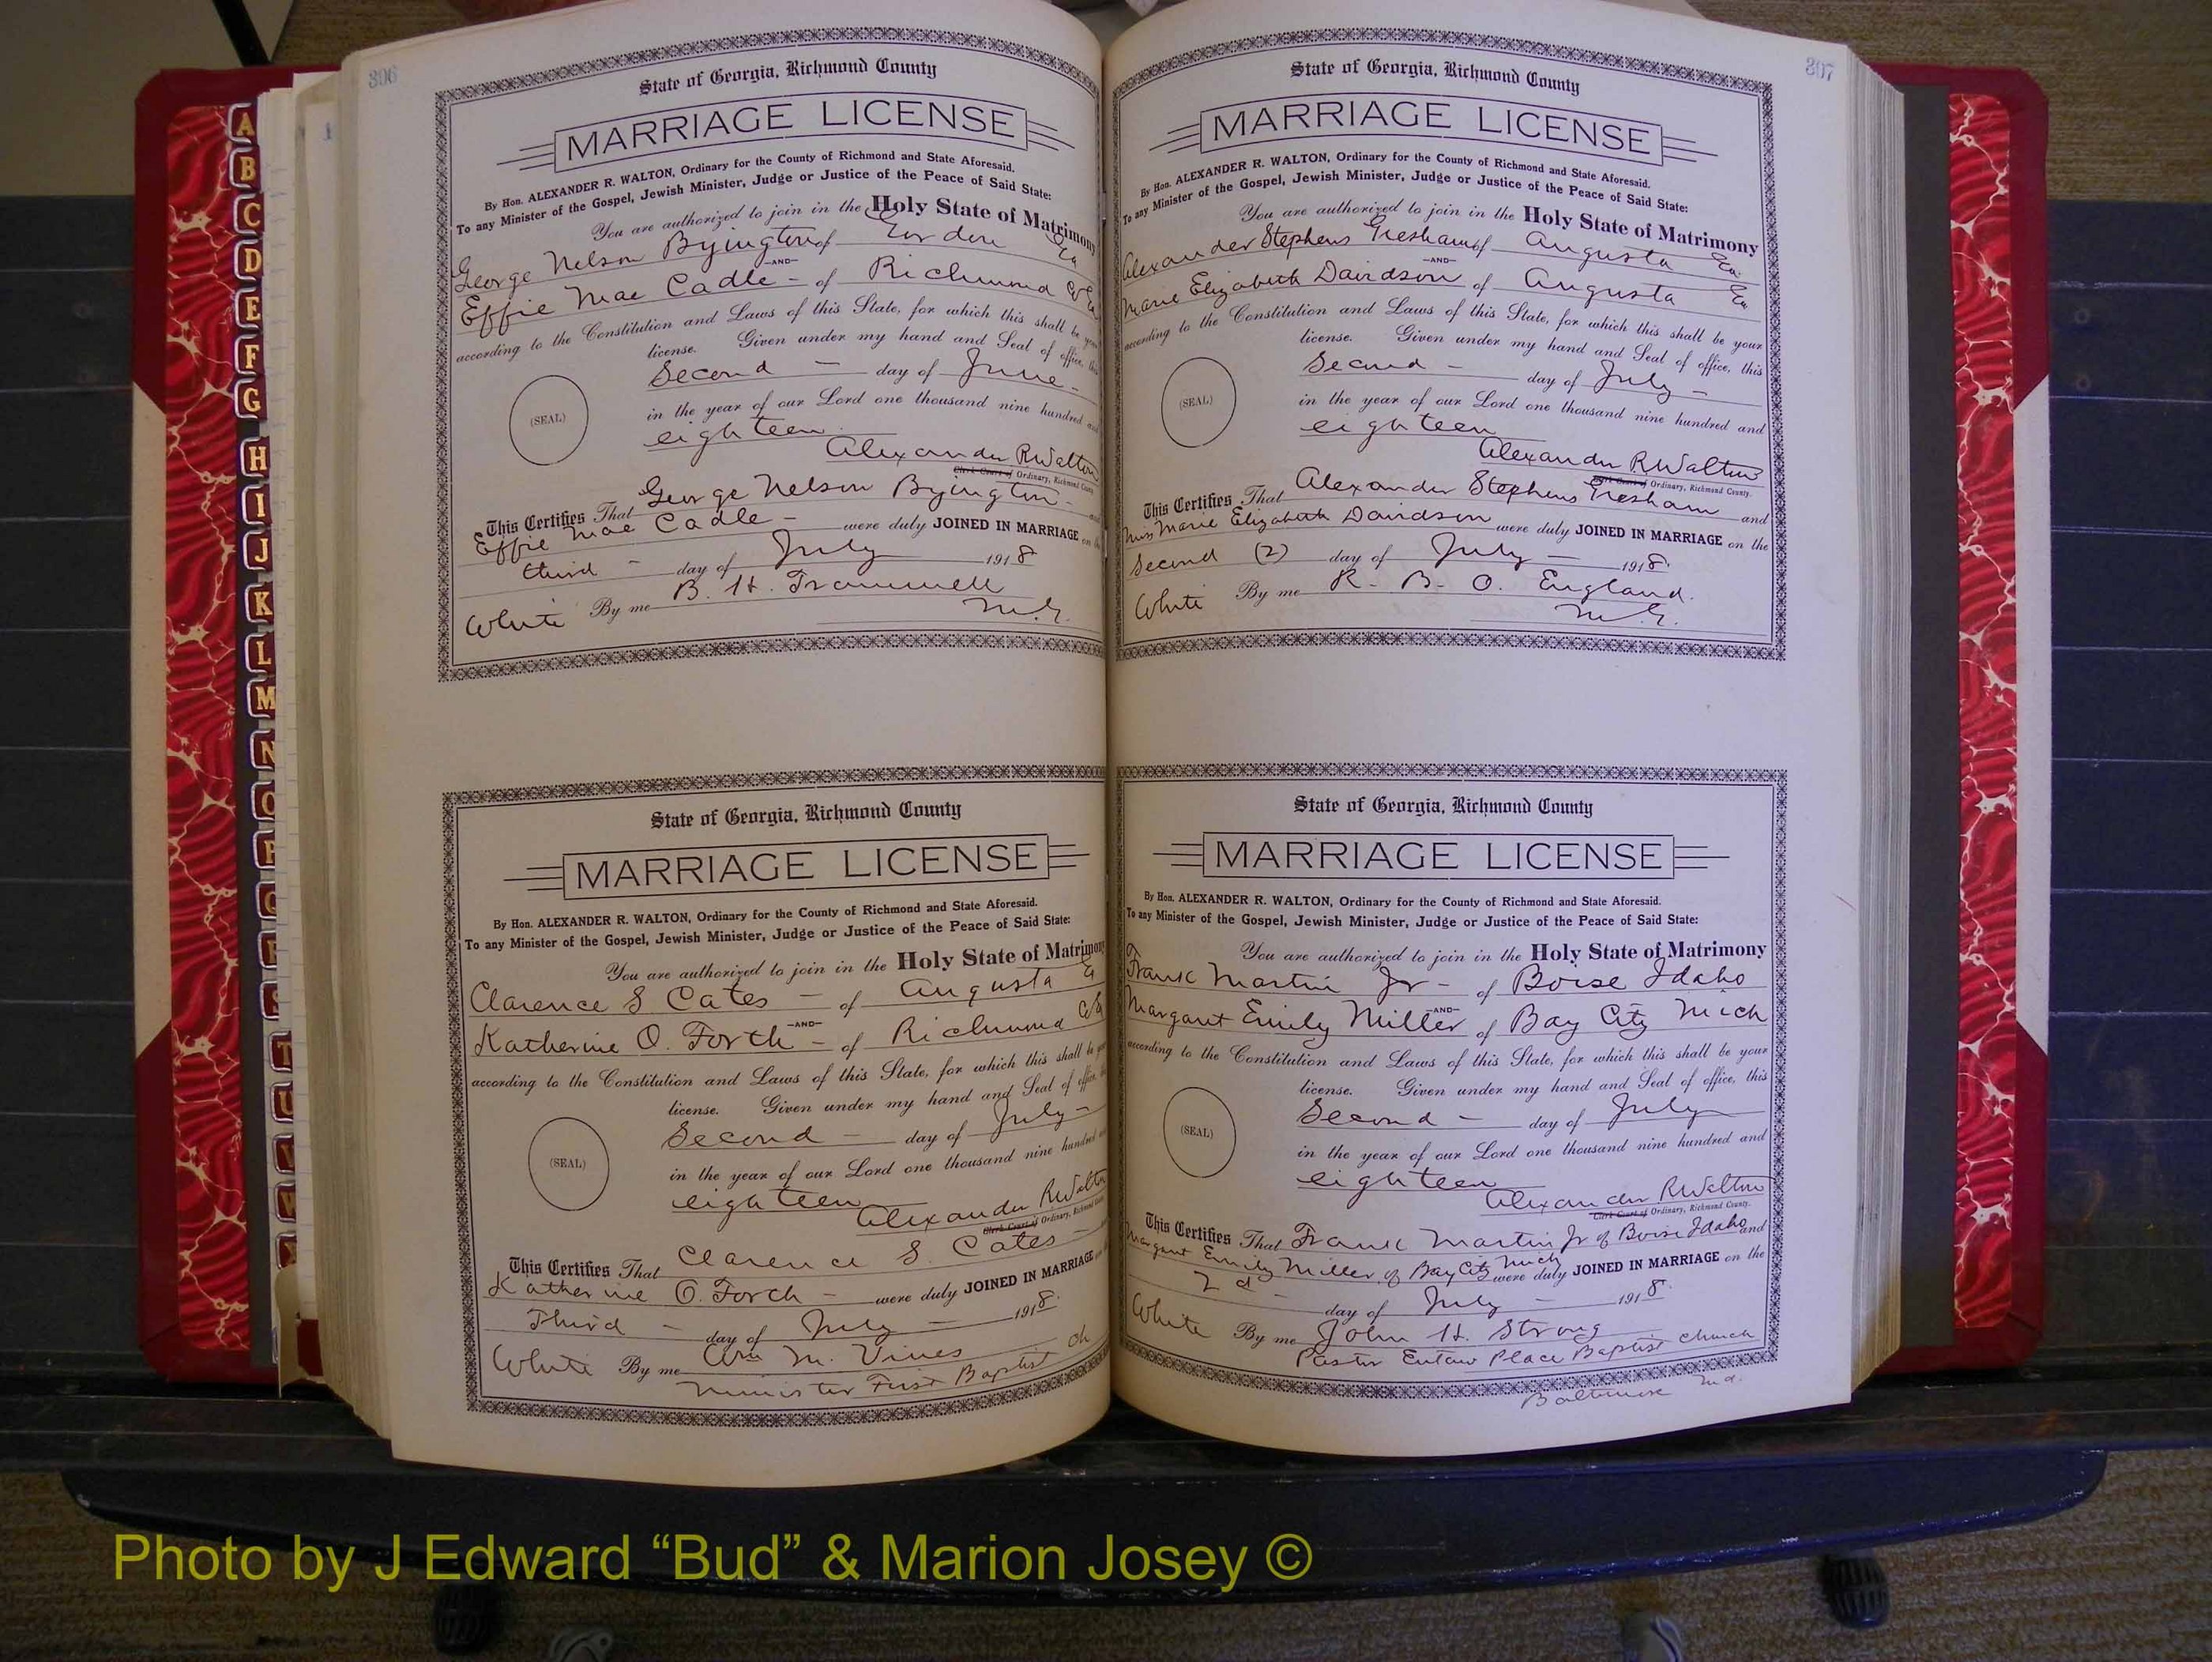 306
State of Georgia, Richmond County
MARRIAGE LICENSE
By Hon. ALEXANDER R. WALTON, Ordinary for the County of Richmond and State Aforesaid.
To any Minister of the Gospel, Jewish Minister, Judge or Justice of the Peace of Said State:
You are authorized to join in the Holy State of Matrimony
George Nelson Byington of Gordon Ga
-AND-
Effie Mae Cadle - of Richmond Co Ga
according to the Constitution and Laws of this State, for which this shall be your
license. Given under my hand and Seal of office, this
Second - day of June -
(SEAL)
in the year of our Lord one thousand nine hundred and
eighteen
Alexander R Walton
Clerk Court of Ordinary, Richmond County
This Certifies That George Nelson Byington - and
Effie Mae Cadle - were duly JOINED IN MARRIAGE on the
third - day of July 1918
White By me B. H. Trammell
M.G.
State of Georgia, Richmond County
MARRIAGE LICENSE
By Hon. ALEXANDER R. WALTON, Ordinary for the County of Richmond and State Aforesaid.
To any Minister of the Gospel, Jewish Minister, Judge or Justice of the Peace of Said State:
You are authorized to join in the Holy State of Matrimony
Clarence S Cates - of Augusta Ga
-AND-
Katherine O. Forth - of Richmond Co Ga
according to the Constitution and Laws of this State, for which this shall be your
license. Given under my hand and Seal of office, this
Second - day of July -
(SEAL)
in the year of our Lord one thousand nine hundred and
eighteen
Alexander R Walton
Clerk Court of Ordinary, Richmond County
This Certifies That Clarence S. Cates -
Katherine O. Forth - were duly JOINED IN MARRIAGE on
Third - day of July - 1918.
White By me Wm M. Vines
Minister First Baptist Ch
307
State of Georgia, Richmond County
MARRIAGE LICENSE
By Hon. ALEXANDER R. WALTON, Ordinary for the County of Richmond and State Aforesaid.
To any Minister of the Gospel, Jewish Minister, Judge or Justice of the Peace of Said State:
You are authorized to join in the Holy State of Matrimony
Alexander Stephens Gresham of Augusta Ga
-AND-
Marie Elizabeth Davidson of Augusta Ga
according to the Constitution and Laws of this State, for which this shall be your
license. Given under my hand and Seal of office, this
Second - day of July -
(SEAL)
in the year of our Lord one thousand nine hundred and
eighteen
Alexander R Walton
Clerk Court of Ordinary, Richmond County.
This Certifies That Alexander Stephens Gresham and
Miss Marie Elizabeth Davidson were duly JOINED IN MARRIAGE on the
Second (2) day of July - 1918.
White By me R. B. O. England.
M.G.
State of Georgia, Richmond County
MARRIAGE LICENSE
By Hon. ALEXANDER R. WALTON, Ordinary for the County of Richmond and State Aforesaid.
To any Minister of the Gospel, Jewish Minister, Judge or Justice of the Peace of Said State:
You are authorized to join in the Holy State of Matrimony
Frank Martin Jr - of Boise Idaho
-AND-
Margaret Emily Miller of Bay City Mich
according to the Constitution and Laws of this State, for which this shall be your
license. Given under my hand and Seal of office, this
Second - day of July
(SEAL)
in the year of our Lord one thousand nine hundred and
eighteen
Alexander R Walton
Clerk Court of Ordinary, Richmond County.
This Certifies That Frank Martin Jr of Boise Idaho and
Margaret Emily Miller, of Bay City Mich were duly JOINED IN MARRIAGE on the
2d - day of July - 1918.
White By me John H. Strong
Pastor Eutaw Place Baptist Church
Baltimore Md.
A
B
C
D
E
F
G
H
I
J
K
L
M
N
O
P
Q
R
S
T
U
V
W
Photo by J Edward “Bud” & Marion Josey ©